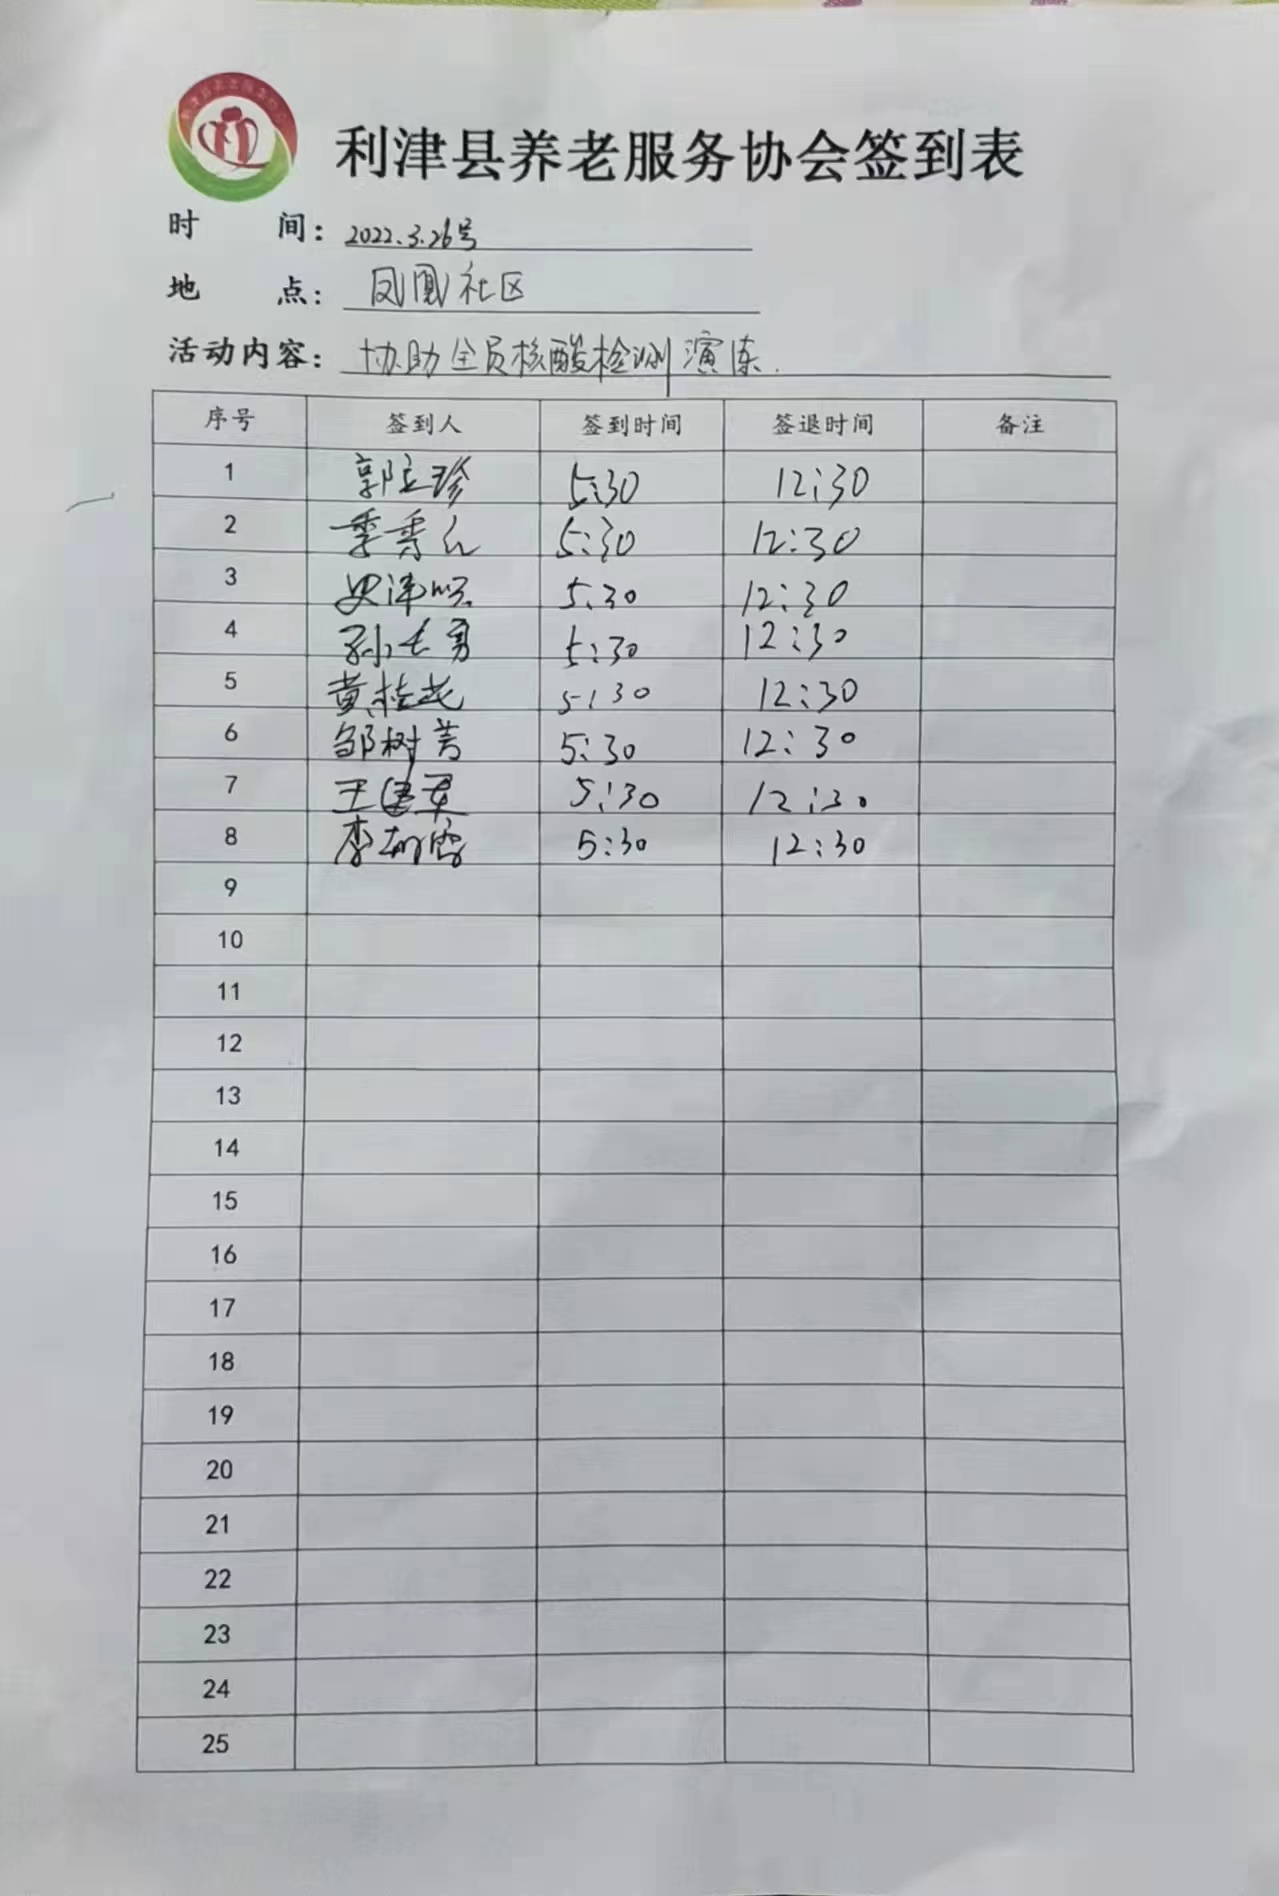 利津县养老服务协会签到表
时 间：2022.3.26号
地 点：凤凰社区
活动内容：协助全员核酸检测演练.
序号 签到人 签到时间 签退时间 备注
1 郭立珍 5:30 12:30
2 季秀红 5:30 12:30
3 史津 5:30 12:30
4 孙志勇 5:30 12:30
5 黄桂花 5:30 12:30
6 邹树芳 5:30 12:30
7 王建军 5:30 12:30
8 李 5:30 12:30
9
10
11
12
13
14
15
16
17
18
19
20
21
22
23
24
25